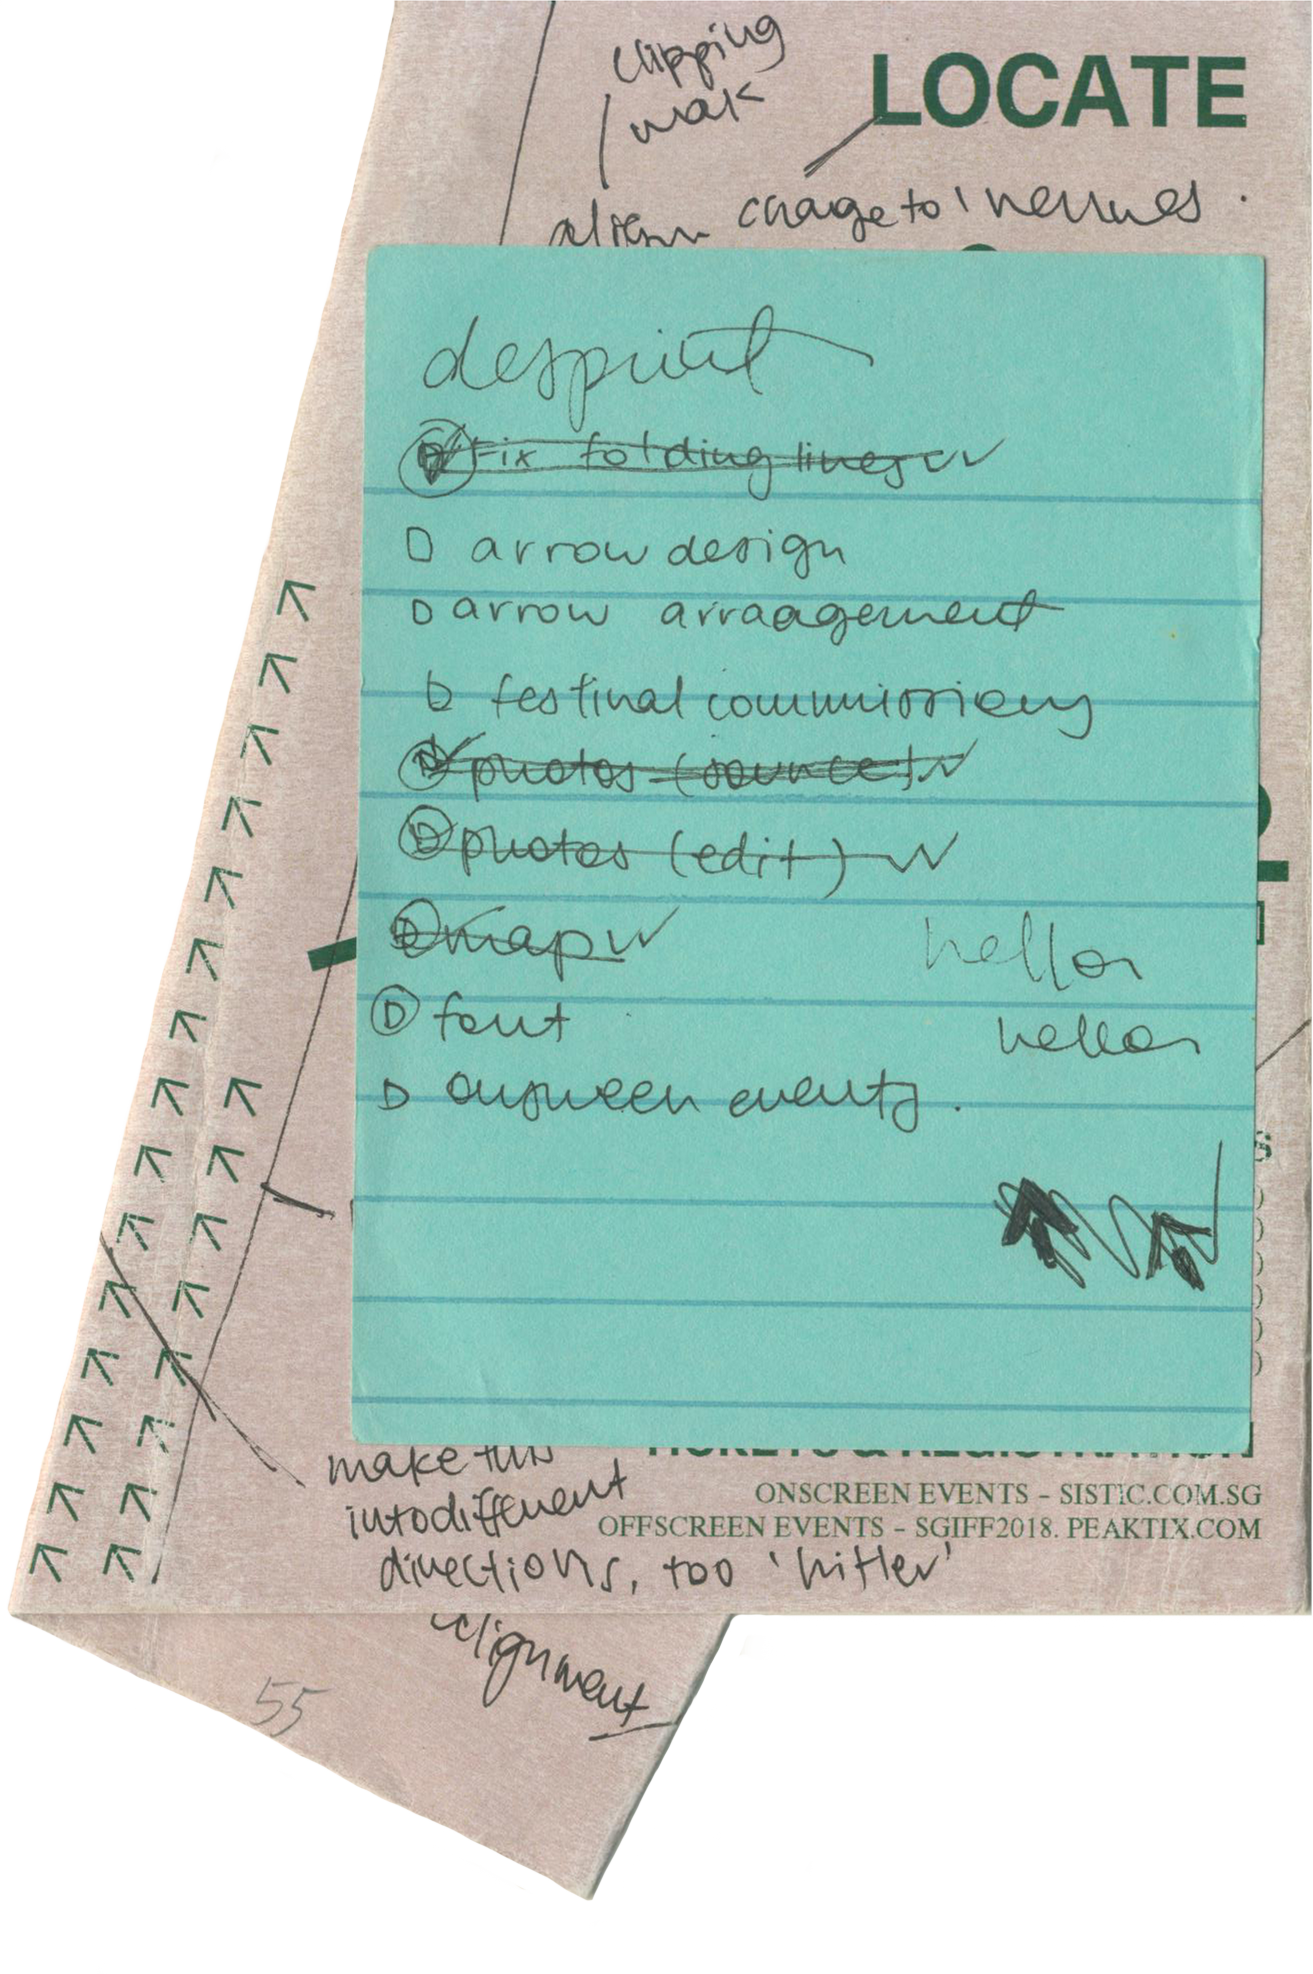 clipping
LOCATE
mak
align change to 'venues
desprint
Fix folding lines
arrow design
arrow arraagement
festival commissions
photos (source)
photos (edit)
map
hello
font
hello
onscreen events.
S
TICKETS & REGISTRATION
make this
ONSCREEN EVENTS – SISTIC.COM.SG
into different
OFFSCREEN EVENTS – SGIFF2018. PEAKTIX.COM
directions, too 'hitler'
alignment
55